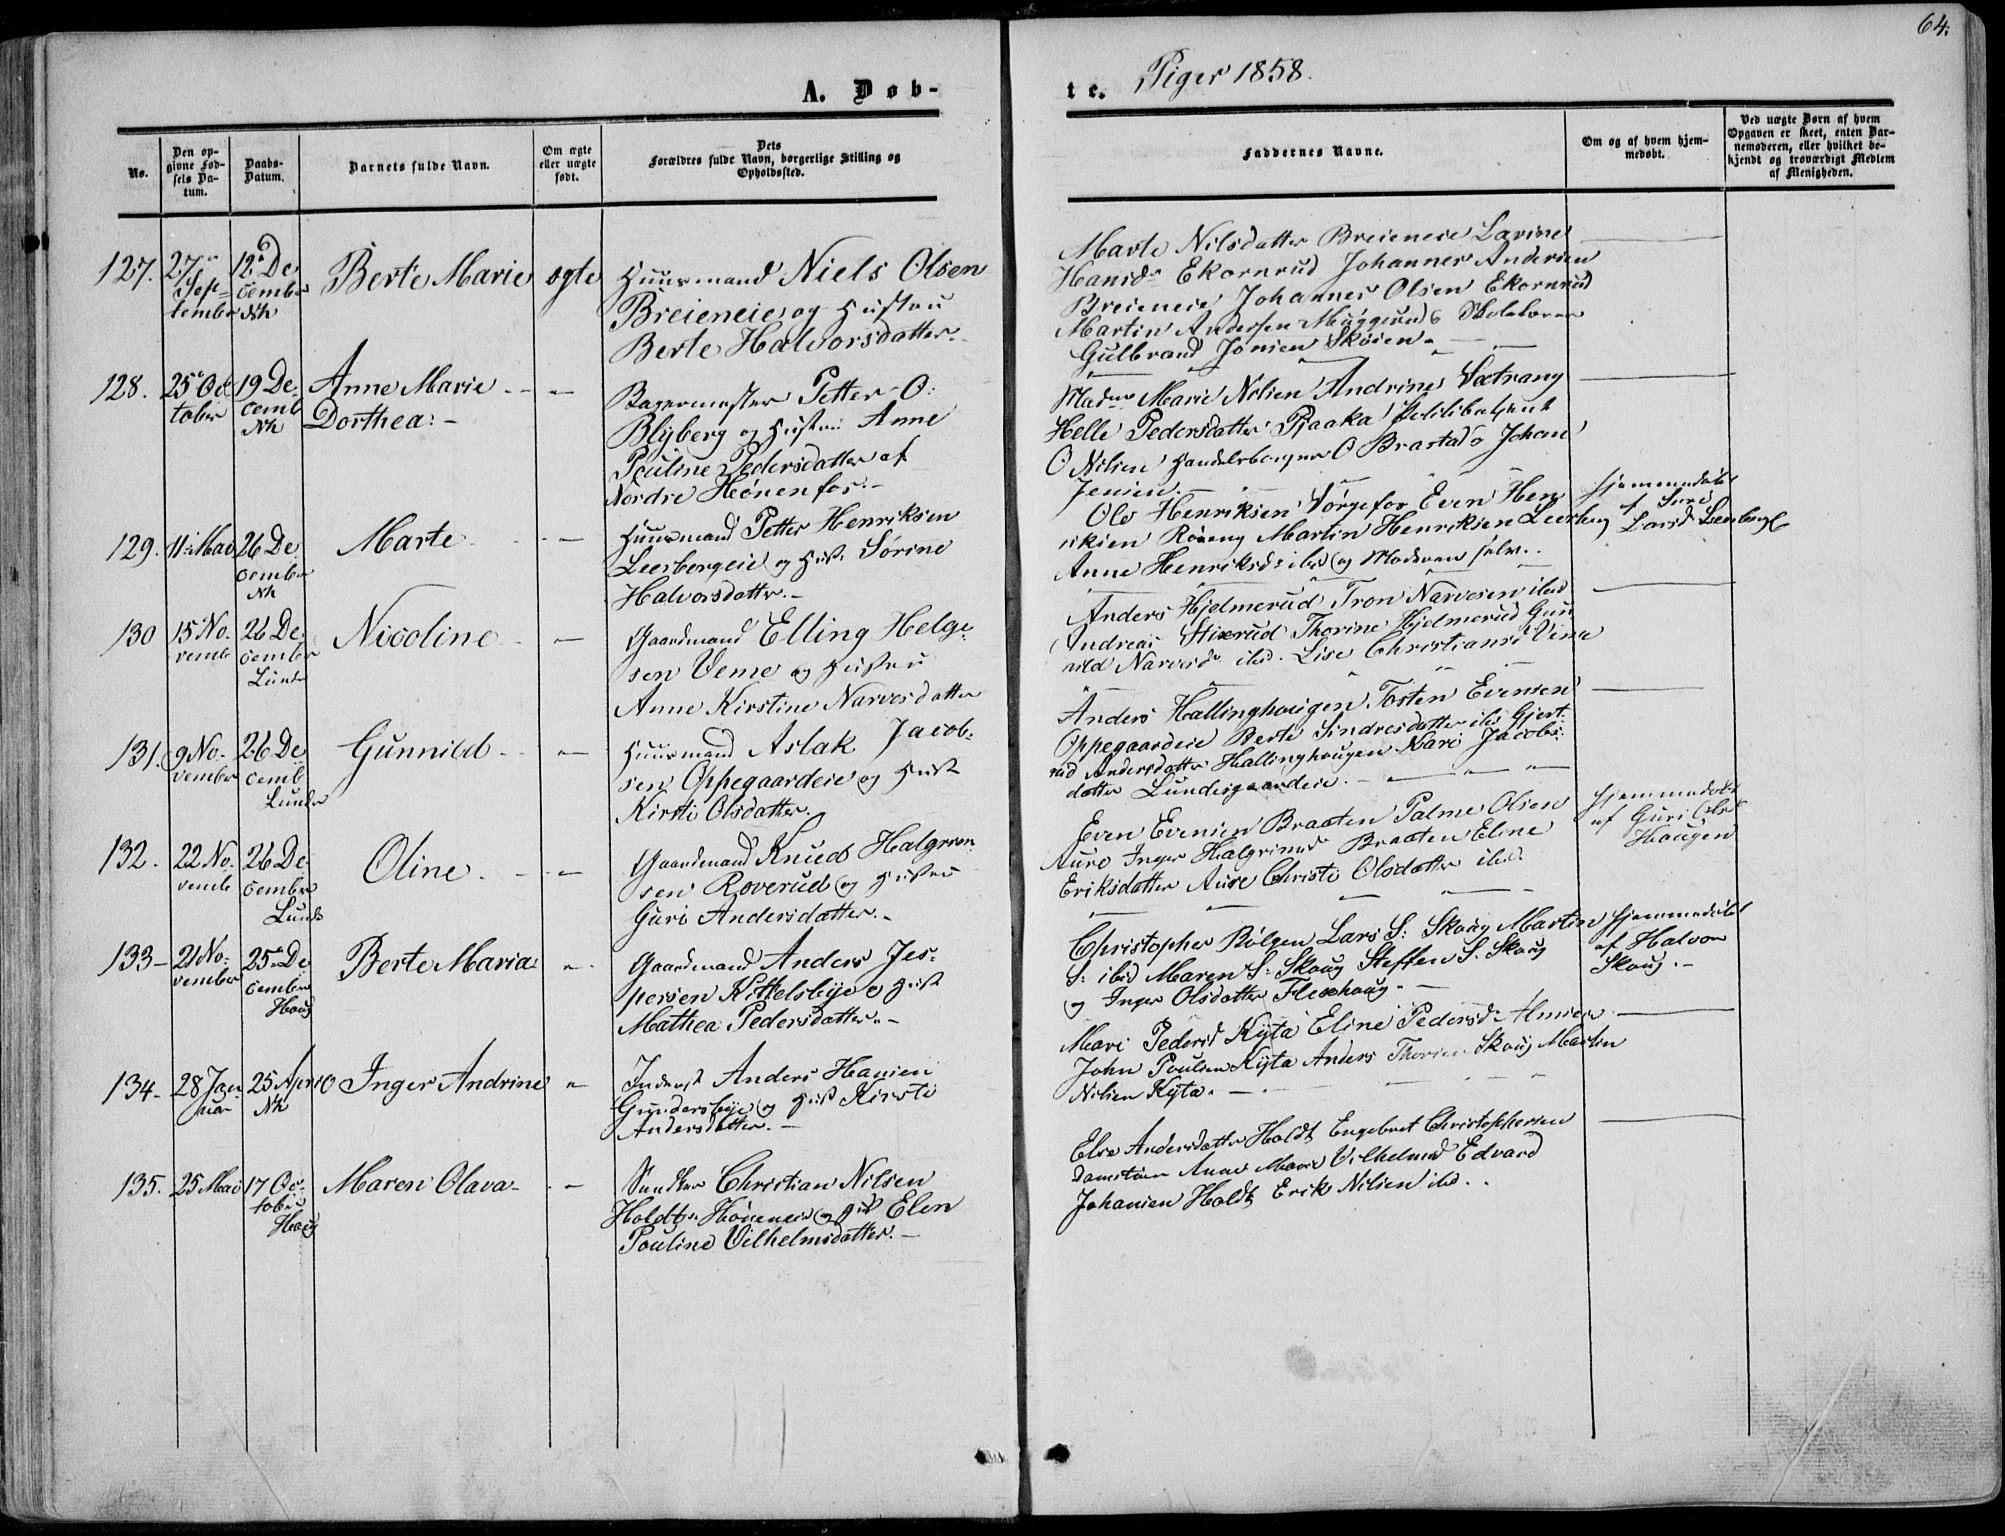 64.
A. Døb-
te. Piger 1858.
No.
Den op-
givne Fød-
sels Da-
tum.
Daabs-
Datum.
Barnets fulde Navn.
Om ægte
eller uægte
født.
Dets
Forældres fulde Navn, borgerlige Stilling og
Opholdssted.
Faddernes Navne.
Om og af hvem hjem-
medøbt.
Ved uægte Børn af hvem
Opgaven er skeet, enten Bar-
nemoderen, eller hvilket be-
kjendt og troværdigt Medlem
af Menigheden.
127. 27 Sep-
tember
12 De
cember
Nk
Berte Marie
ægte
Huusmand Niels Olsen
Breieneie og Hustru
Berte Halvorsdatter.
Marte Nilsdatter Breieneie Lavine
Hansd Ekornrud Johannes Andersen
Breieneie Johannes Olsen Ekornrud
Martin Andersen Muggerud Skolelærer
Gulbrand Jonsen Skøien.
128. 25 Oc
tober
19 De
cemb
Nk
Anne Marie
Dorthea.
Bagermester Petter O:
Blyberg og Hustru Anne
Pouline Pedersdatter af
Nordre Hønenfos.
Mad Marie Nilsen Andrine Sætrang
Helle Pedersdatter Raaka
O Nilsen Handelsborger O Brastad Johan
Jensen.
129. 11 Mai
26 De
cember
Nk
Marte
Huusmand Petter Henriksen
Leerbergeie og Hust Sørine
Halvorsdatter.
Ole Henriksen Sørgefos Even Hen
riksen Røseng Martin Henriksen Leerberg
Anne Henriksd ibid og Moderen selv.
Hjemmedøbt
af
Larsd Leerberg
130 15 No-
vemb
26 De
cember
Lunder
Nicoline
Gaardmand Elling Helge-
sen Veme og Hustru
Anne Kirstine Narvesdatter
Anders Hjelmerud Tron Narvesen ibid
Andreas Stixrud Thorine Hjelmerud Gun
nild Narvesd ibid. Lise Christiansd Veme
131. 9 No-
vember
26 De
cemb
Lunder
Gunnild
Huusmand Aslak Jacob-
sen Oppegaardeie og Hust
Kirsti Olsdatter.
Anders Hallinghaugen Tosten Evensen
Oppegaardeie Berte Sindresdatter ibid Gjert-
rud Andersdatter Hallinghaugen Kari Jacobs-
datter Lundesgaardeie.
132. 22 No-
vemb
26 De
cember
Lunder
Oline
Gaardmand Knud Halgrim
sen Roverud og Hustru
Guri Andersdatter.
Even Evensen Braaten Palme Olsen
Aure Inger Halgrimsd Braaten Eline
Eriksdatter Aure Christi Olsdatter ibid
Hjemmedøbt
af Guri Olsd
Haugen
133 21 No-
vember
25 De
cember
Houg
Berte Maria
Gaardmand Anders Jes-
persen Kittelsbye og Hust
Mathea Pedersdatter.
Christopher Bølgen Lars S: Skoug Martin
S: ibid Maren S: Skoug Steffen S. Skoug
og Inger Olsdatter Fleskoug.
Hjemmedøbt
af Halvor
Skoug.
134. 28 Jan-
uar
25 April
Nk
Inger Andrine
Inderst Anders Hansen
Gundersbye og Hust Kirsti
Andersdatter.
Mari Pedersd Kyta Eline Pedersd
John Poulsen Kyta Anders Skoug Martin
Nilsen Kyta.
135. 25 Mai
17 Oc-
tober
Houg
Maren Olava
Snedker Christian Nilsen
Holdt Høneneie og Hust Elen
Pouline Vilhelmsdatter.
Else Andersdatter Holdt Engebret Christophersen
Anne Marie Vilhelmsd Edvard
Johansen Holdt Erik Nilsen ibid.